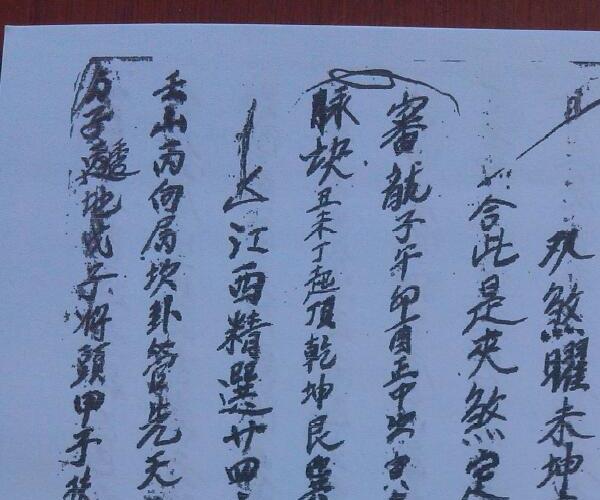 双煞曜未坤
合此是夾煞定
審龍子午卯酉正中出寅
脉訣丑未丁起頂乾坤艮巽
江西精選廿四
壬山丙向局坎卦管先天
方子 地戈子将頭甲子